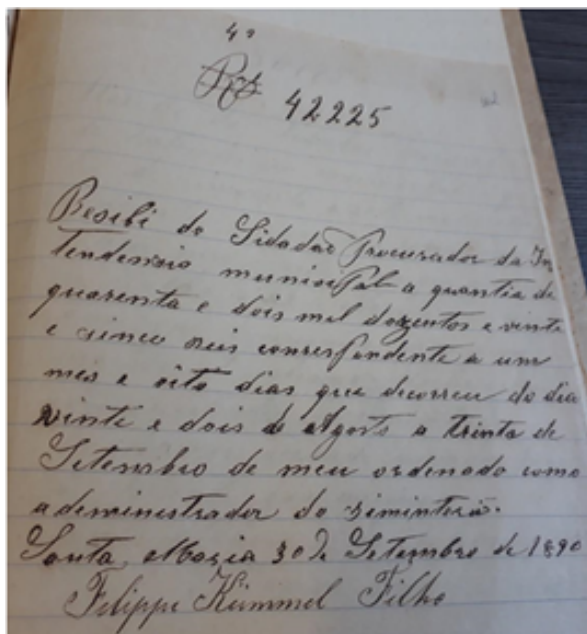 4º
Rs 42225
Resibi do Sidadão Procurador da In
tendensia municipal a quantia de
quarenta e dois mil dozentos e vinte
e sinco reis correspondente a um
mes e oito dias que decorreu do dia
vinte e dois de Agosto a trinta de
Setembro de meu ordenado como
ademinestrador do siminterio.
Santa Maria 30 de Setembro de 1890
Filippe Kümmel Filho